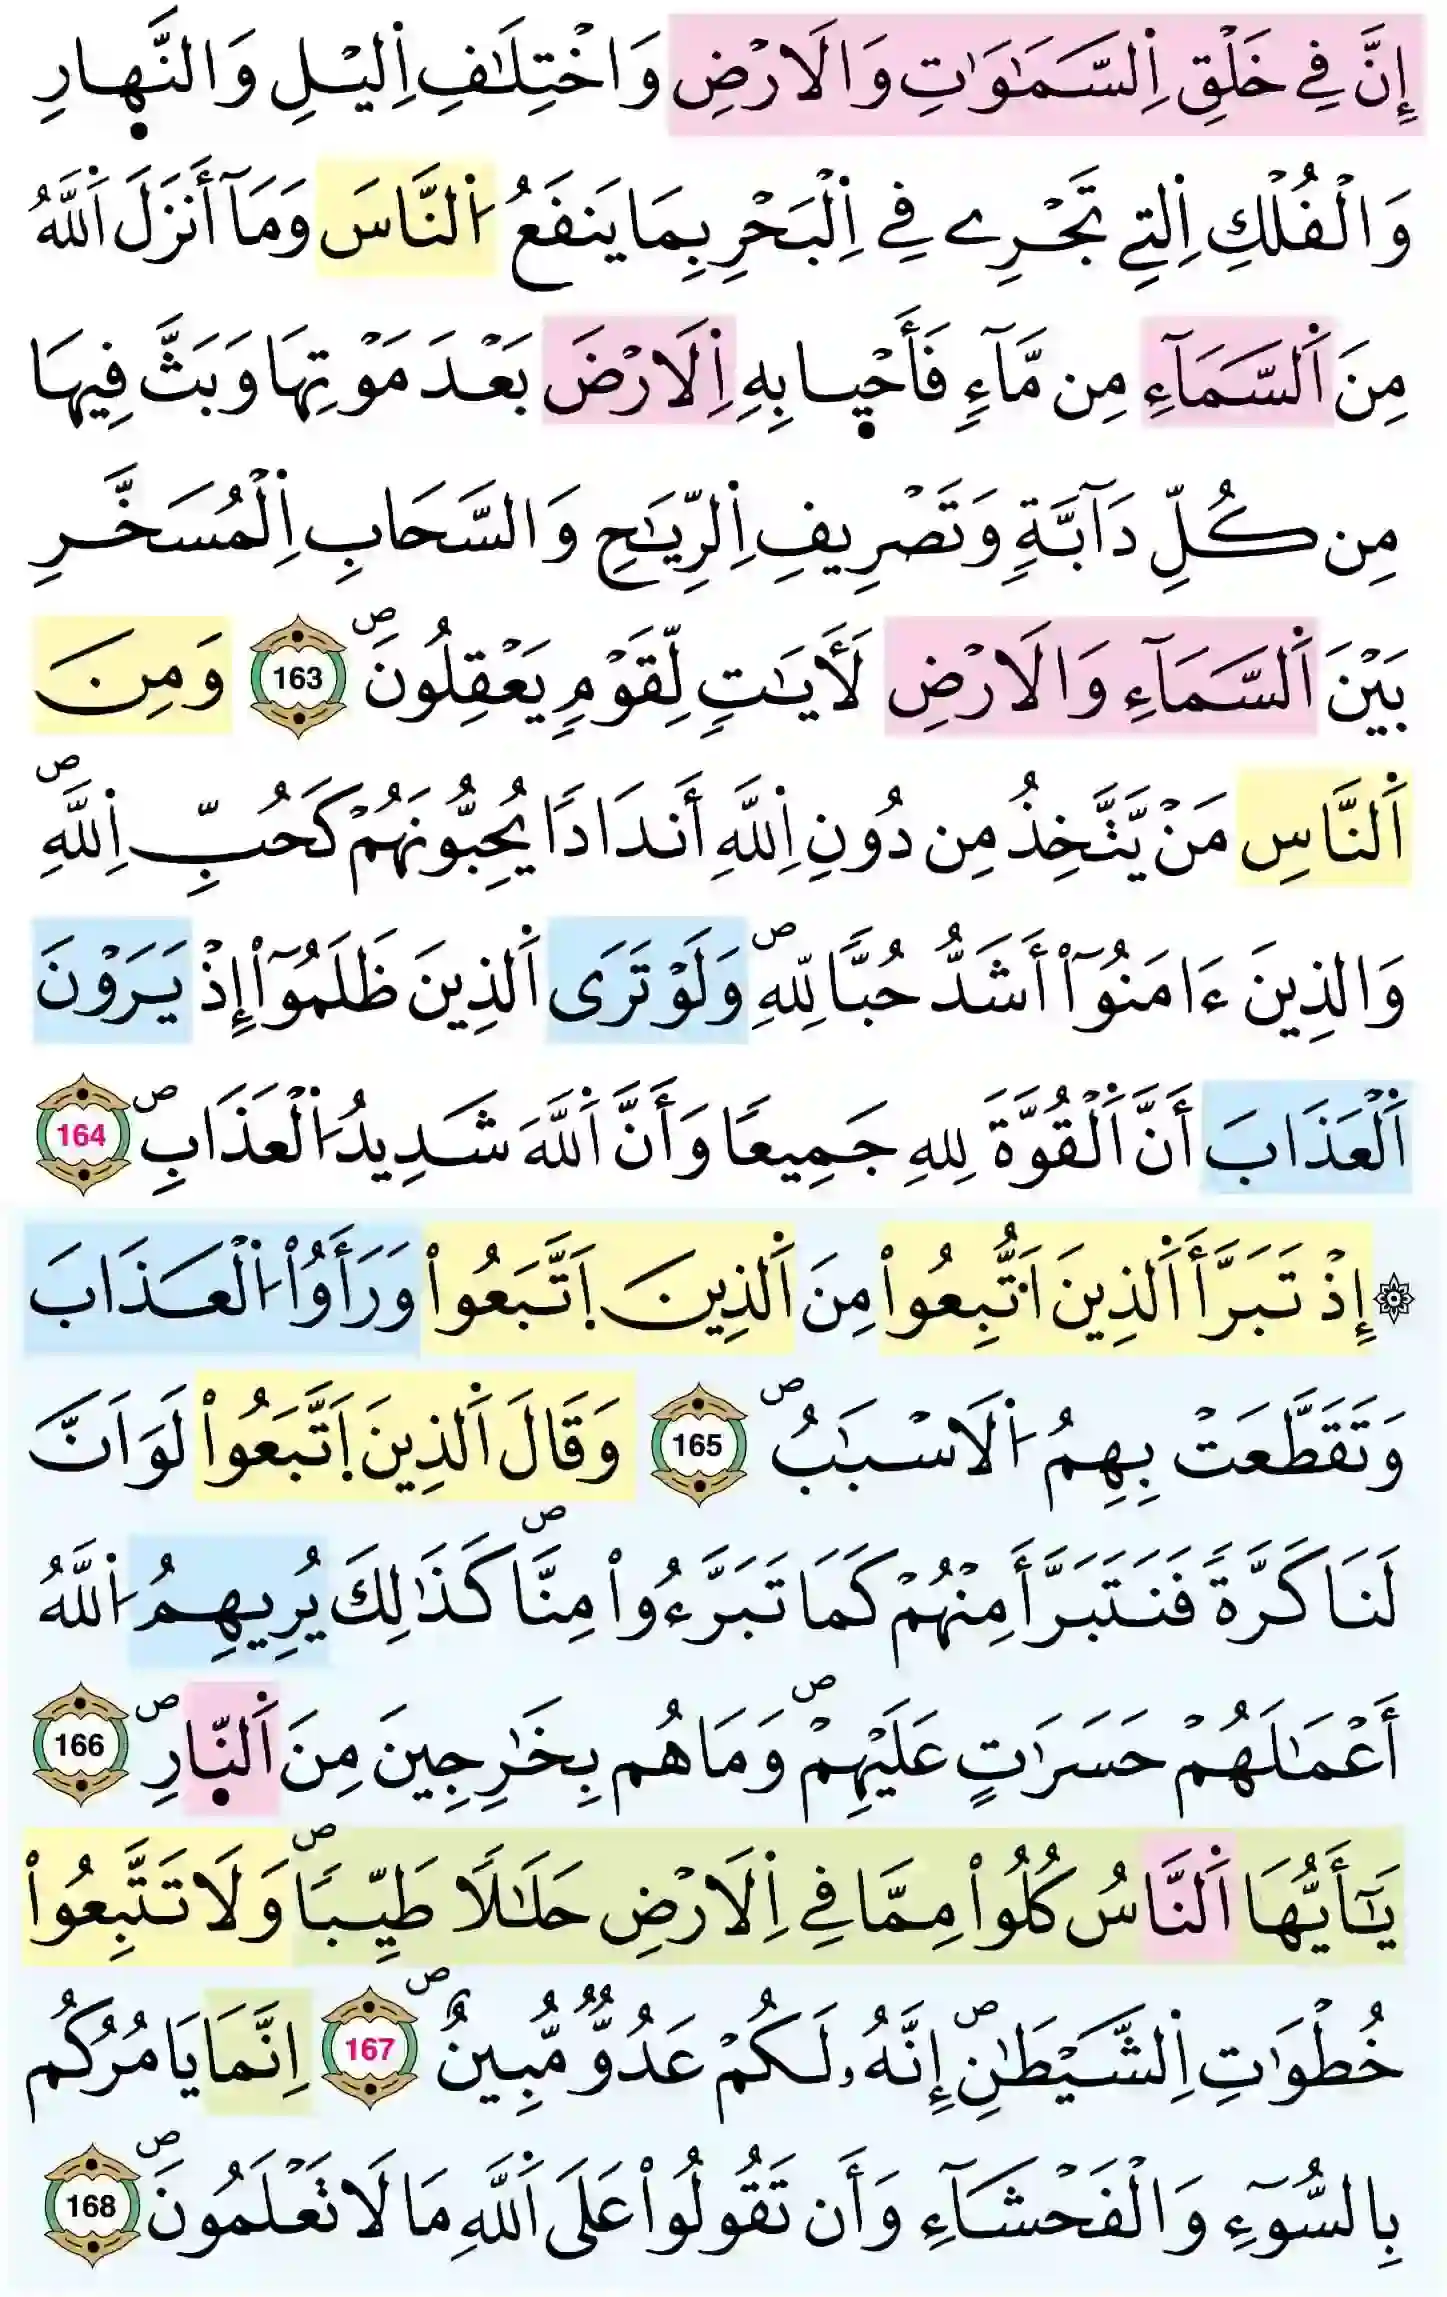 إِنَّ فِے خَلْقِ اِ۬لسَّمَٰوَٰتِ وَالَارْضِ وَاخْتِلَٰفِ اِ۬ليْلِ وَالنَّه۪ارِ
وَالْفُلْكِ اِ۬لتِے تَجْرِے فِے اِ۬لْبَحْرِ بِمَا يَنفَعُ اُ۬لنَّاسَ وَمَآ أَنزَلَ اَ۬للَّهُ
مِنَ اَ۬لسَّمَآءِ مِن مَّآءٍ فَأَحْي۪ا بِهِ اِ۬لَارْضَ بَعْدَ مَوْتِهَا وَبَثَّ فِيهَا
مِن كُلِّ دَآبَّةٍ وَتَصْرِيفِ اِ۬لرِّيَٰحِ وَالسَّحَابِ اِ۬لْمُسَخَّرِ
بَيْنَ اَ۬لسَّمَآءِ وَالَارْضِ لَأٓيَٰتٍ لِّقَوْمٍ يَعْقِلُونَۖ 163 وَمِنَ
اَ۬لنَّاسِ مَنْ يَّتَّخِذُ مِن دُونِ اِ۬للَّهِ أَندَادًا يُحِبُّونَهُمْ كَحُبِّ اِ۬للَّهِۖ
وَالذِينَ ءَامَنُوٓاْ أَشَدُّ حُبًّا لِلهِۖ وَلَوْ تَرَى اَ۬لذِينَ ظَلَمُوٓاْ إِذْ يَرَوْنَ
اَ۬لْعَذَابَ أَنَّ اَ۬لْقُوَّةَ لِلهِ جَمِيعًا وَأَنَّ اَ۬للَّهَ شَدِيدُ اُ۬لْعَذَابِۖ 164
۞ إِذْ تَبَرَّأَ اَ۬لذِينَ اَ۟تُّبِعُواْ مِنَ اَ۬لذِينَ اَ۪تَّبَعُواْ وَرَأَوُاْ اُ۬لْعَذَابَ
وَتَقَطَّعَتْ بِهِمُ اُ۬لَاسْبَٰبُۖ 165 وَقَالَ اَ۬لذِينَ اَ۪تَّبَعُواْ لَوَ اَنَّ
لَنَا كَرَّةً فَنَتَبَرَّأَ مِنْهُمْ كَمَا تَبَرَّءُواْ مِنَّاۖ كَذَٰلِكَ يُرِيهِمُ اُ۬للَّهُ
أَعْمَٰلَهُمْ حَسَرَٰتٍ عَلَيْهِمْۖ وَمَا هُم بِخَٰرِجِينَ مِنَ اَ۬لنّ۪ارِۖ 166
يَٰٓأَيُّهَا اَ۬لنَّاسُ كُلُواْ مِمَّا فِے اِ۬لَارْضِ حَلَٰلًا طَيِّبًاۖ وَلَا تَتَّبِعُواْ
خُطْوَٰتِ اِ۬لشَّيْطَٰنِۖ إِنَّهُۥ لَكُمْ عَدُوٌّ مُّبِينٌۖ 167 اِنَّمَا يَامُرُكُم
بِالسُّوٓءِ وَالْفَحْشَآءِ وَأَن تَقُولُواْ عَلَى اَ۬للَّهِ مَا لَا تَعْلَمُونَۖ 168